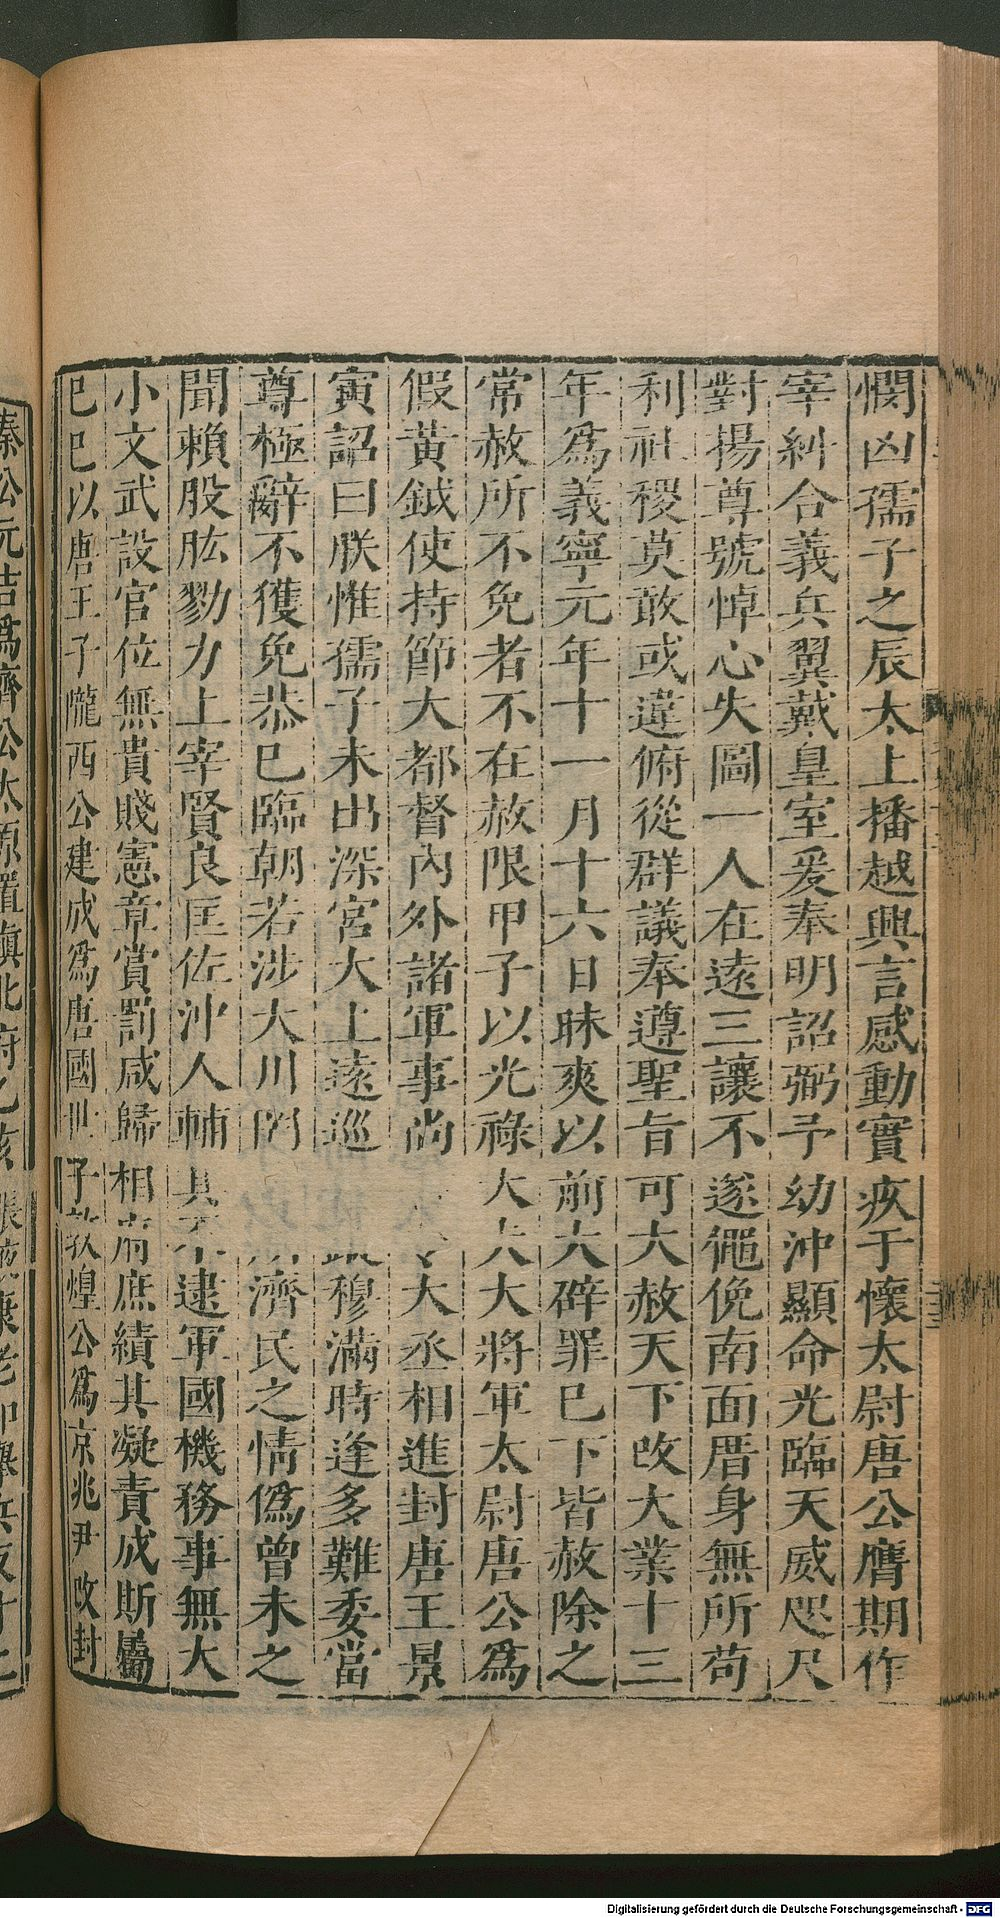 憫凶孺子之辰太上播越興言感動實疚于懷太尉唐公膺期作
宰糾合義兵翼戴皇室爰奉明詔弼予幼沖顯命光臨天威咫尺
對揚尊號悼心失圖一人在遠三讓不遂僶俛南面厝身無所苟
利社稷莫敢或違俯從群議奉遵聖旨可大赦天下改大業十三
年為義寧元年十一月十六日昧爽以前大辟罪已下皆赦除之
常赦所不免者不在赦限甲子以光祿大夫大將軍太尉唐公爲
假黃鉞使持節大都督內外諸軍事尚大丞相進封唐王景
寅詔曰朕惟孺子未出深宮大上遠巡穆滿時逢多難委當
尊極辭不獲免恭已臨朝若涉大川罔濟民之情僞曾未之
聞賴股肱勠力上宰賢良匡佐沖人輔其不逮軍國機務事無大
小文武設官位無貴賤憲章賞罰咸歸相府庶績其凝責成斯屬
已巳以唐王子隴西公建成爲唐國世子敦煌公爲京兆尹改封
秦公元吉爲齊公太原置鎭北府乙亥張掖康老和舉兵反
Digitalisierung gefördert durch die Deutsche Forschungsgemeinschaft - DFG